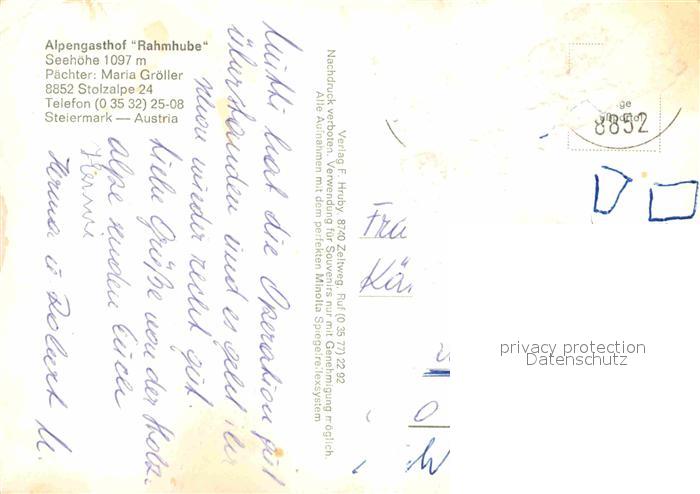 Alpengasthof "Rahmhube"
Seehöhe 1097 m
Pächter: Maria Gröller
8852 Stolzalpe 24
Telefon (0 35 32) 25-08
Steiermark — Austria
Mutti hat die Operation gut
überstanden und es geht ihr
schon wieder recht gut.
Liebe Grüße von der Stolz-
alpe senden Euch
Herma u. Robert M.
Verlag F. Hruby, 8740 Zeltweg, Ruf (0 35 77) 22 92
Nachdruck verboten. Verwendung für Souvenirs nur mit Genehmigung möglich.
Alle Aufnahmen mit dem perfekten Minolta Spiegelreflexsystem
8852
Fra
Kä
privacy protection
Datenschutz